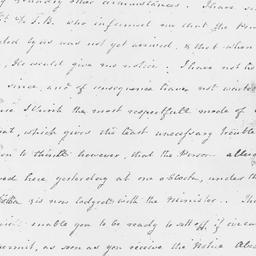 sundry other circumstances. I have
S.B. who informed me that the Person
by us was not yet arrived, & that when
, He would give me notice. I have not
since, and of consequence have not
I think the most respectfull mode of
, which gives the least unnecessary trouble
to think however, that the Person
here yesterday at one oClock, under the
is now lodged with the Minister.
enable you to be ready to set off if
permit, as soon as you receive the Notice